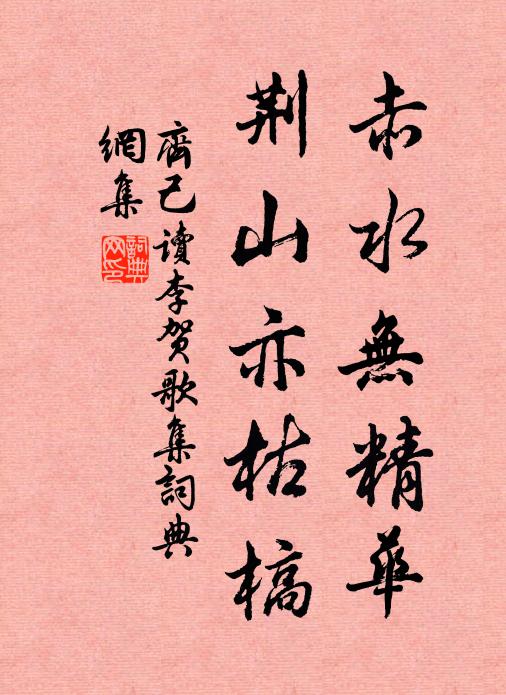 赤水無精華
荆山亦枯槁
齊己讀李贺歌集詞典
網集
詞典
网印